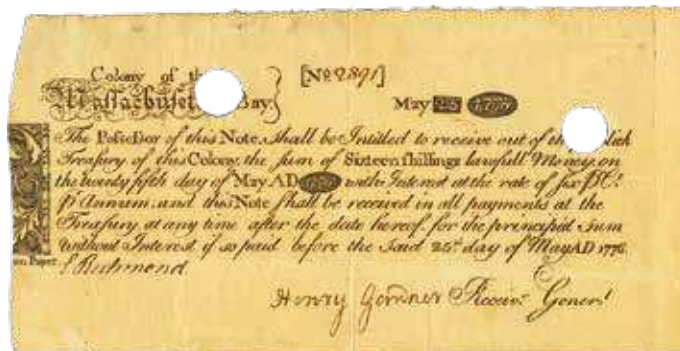 Colony of th [No 2891]
Massachuset Bay May 25
The Possessor of this Note shall be Intitled to receive out of the lick
Treasury of this Colony, the sum of Sixteen shillings lawfull Money on
the twenty fifth day of May AD with Interest at the rate of six PCt
pr Annum and this Note shall be received in all payments at the
Treasury at any time after the date hereof for the principal Sum
without Interest if so paid before the said 25th day of May AD 1776
Richmond
Henry Gardner Receivr Generl